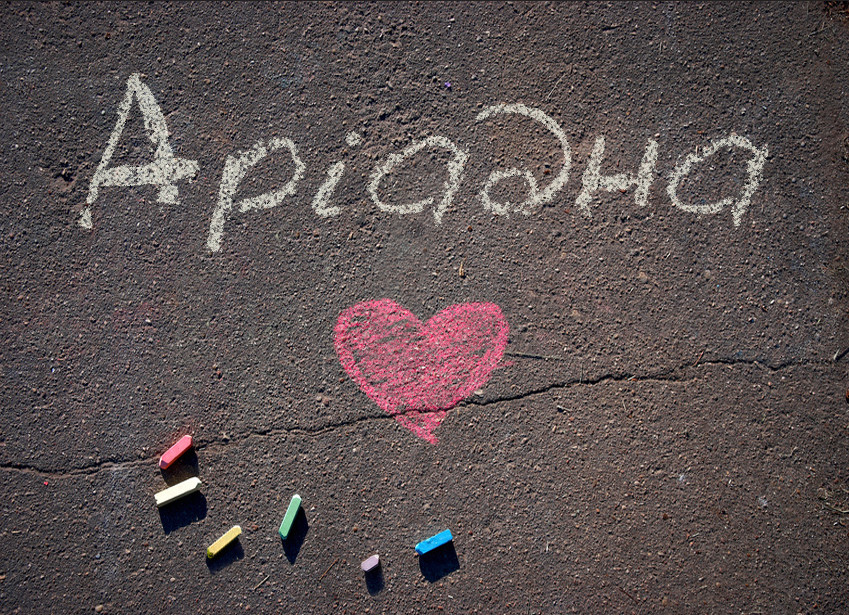 Аріадна